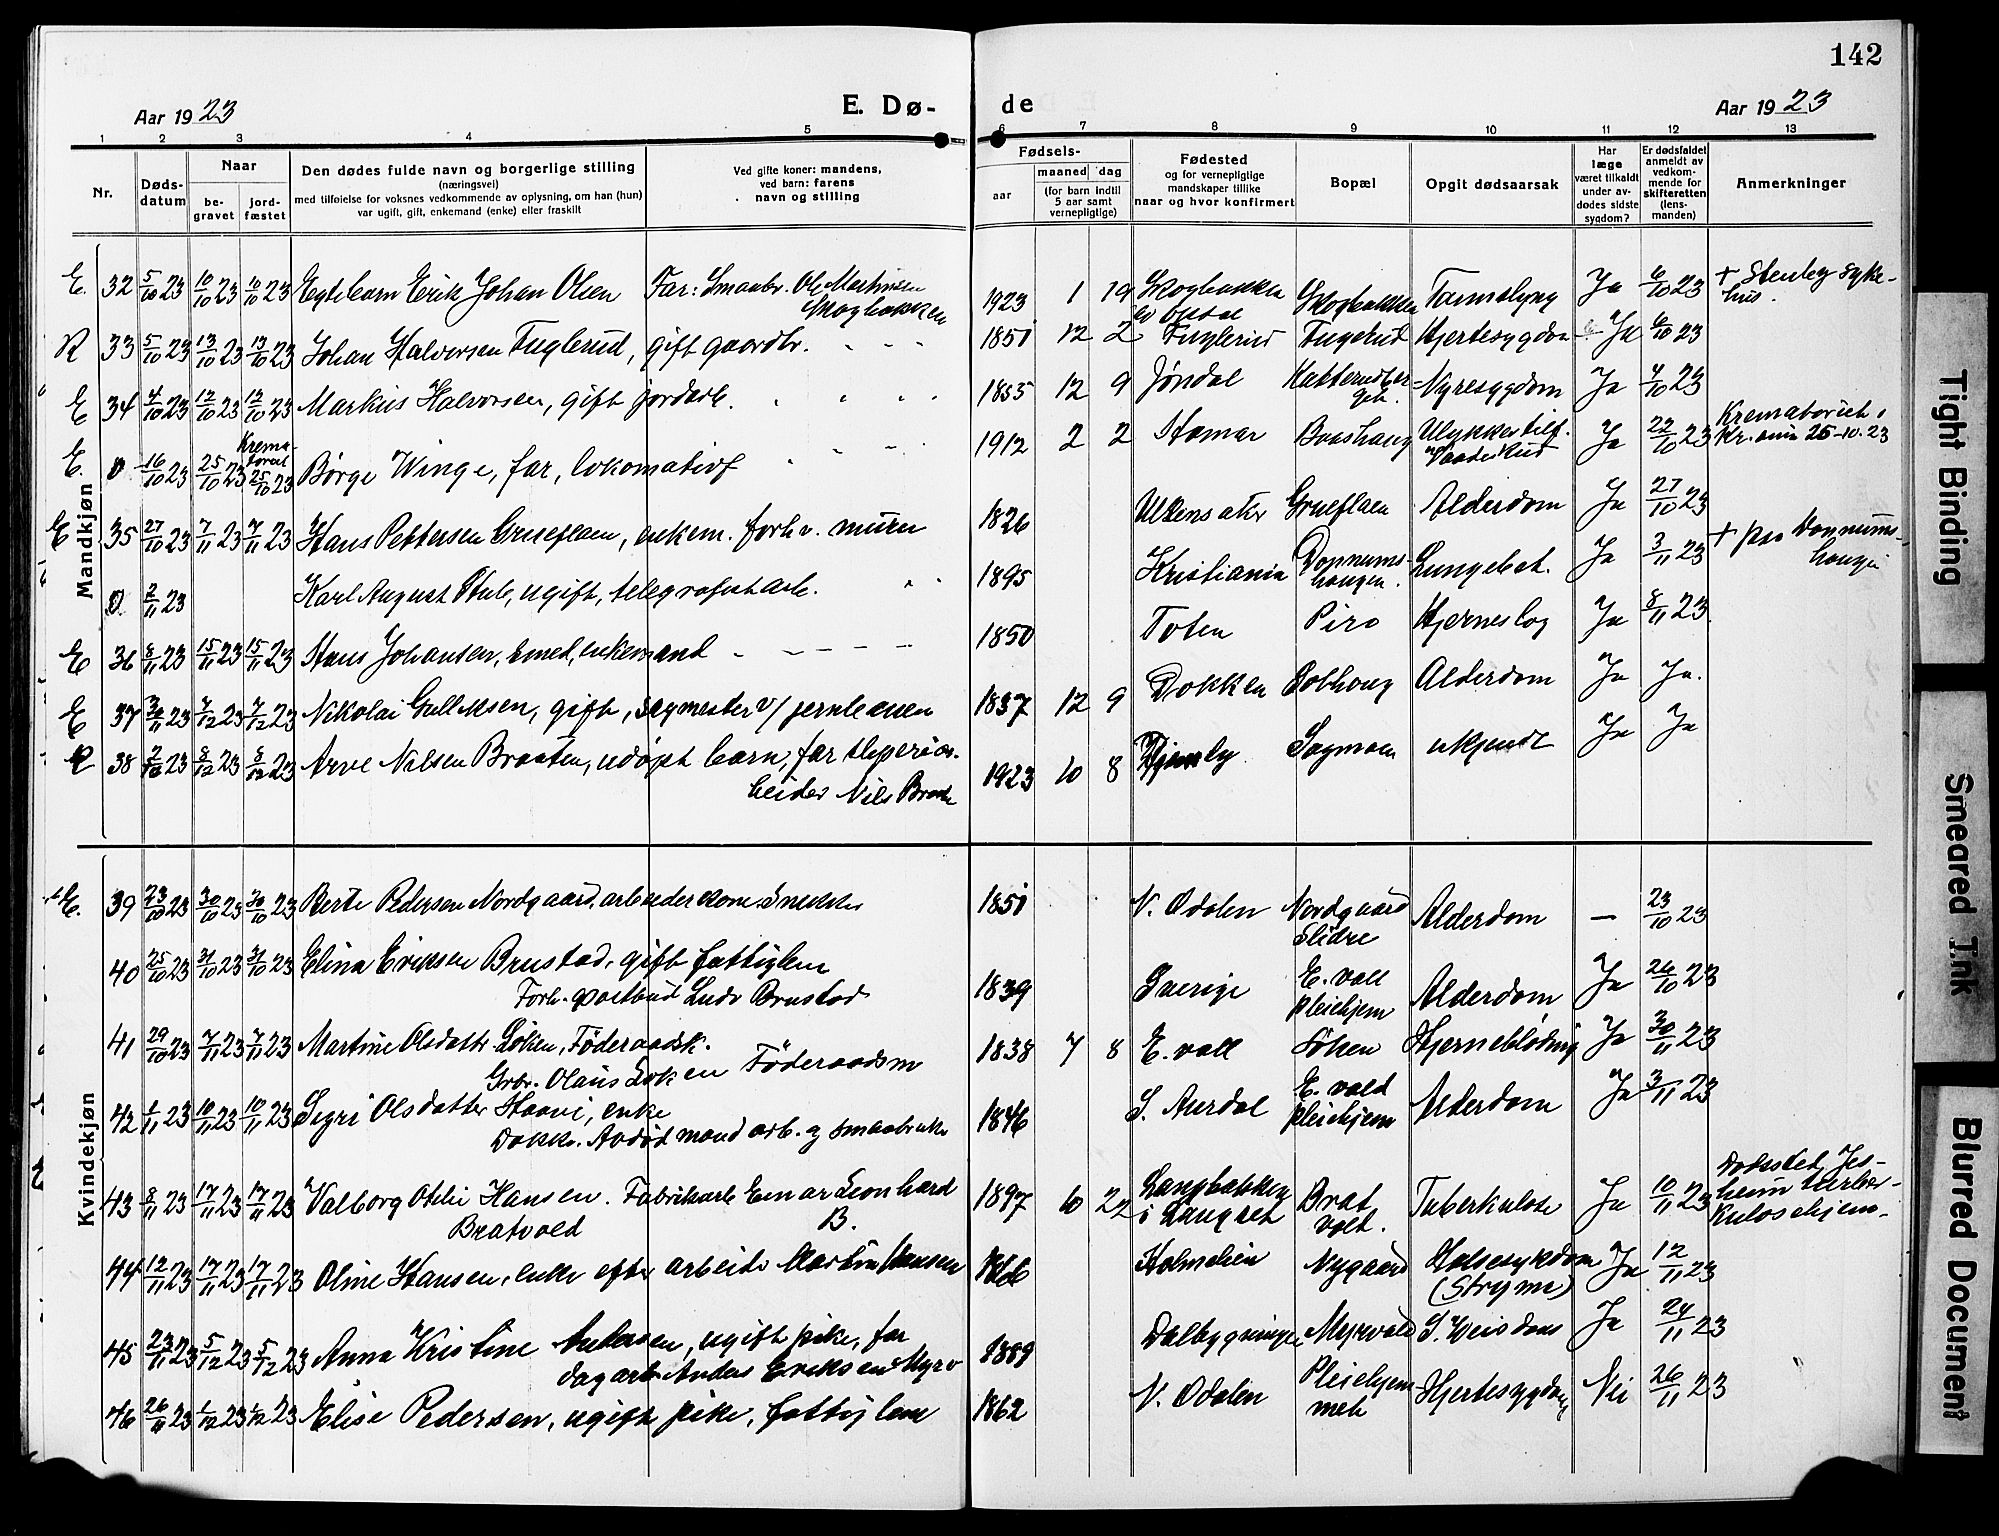 142
Aar 1923
E. Dø-
de
Aar 1923
1 2 3 4 5 6 7 8 9 10 11 12 13
Nr.
Døds-
datum
Naar
be-
gravet
jord-
fæstet
Den dødes fulde navn og borgerlige stilling
(næringsvei)
med tilføielse for voksnes vedkommende av oplysning, om han (hun)
var ugift, gift, enkemand (enke) eller fraskilt
Ved gifte koner: mandens,
ved barn: farens
navn og stilling
Fødsels-
aar
maaned dag
(for barn indtil
5 aar samt
vernepligtige)
Fødested
og for vernepligtige
mandskaper tillike
naar og hvor konfirmert
Bopæl
Opgit dødsaarsak
Har
læge
været tilkaldt
under av-
dødes sidste
sygdom?
Er dødsfaldet
anmeldt av
vedkom-
mende for
skifteretten
(lens-
manden)
Anmerkninger
Mandkjøn
E. 32 5/10 23 10/10 23 10/10 23 Egtebarn Erik Johan Olsen Far: Smaabr. Ole Martinsen
Skogbakken
1923 1 19 Skogbakken Skogbakken Ja 6/10 23 + Stenby syke-
hus.
R 33 5/10 23 13/10 23 13/10 23 Johan Halvorsen Fuglerud, gift gaardbr. 1851 12 2 Fuglerud Fuglerud Hjertesygdom Ja 6/10 23
E 34 4/10 23 12/10 23 12/10 23 Markus Halvorsen, gift jordarb. 1855 12 9 Jøndal Nyresygdom Ja 4/10 23
E. 0 16/10 23 25/10 23 Krema-
toriet
25/10 23 Børge Winge, far, lokomotivf 1912 2 2 Hamar Ulykkestilf.
Vaadeskud Ja 22/10 23 Krematoriet i
Kr.ania 25-10-23
E 35 27/10 23 7/11 23 7/11 23 Hans Pettersen Grueflaen, enkem. forhv. murer 1826 Ullensaker Grueflaen Alderdom Ja 27/10 23
0 2/11 23 Karl August Stub, ugift, telegrafarb. 1895 Kristiania Donnums-
haugen. Lungebet. Ja 3/11 23 + paa Donnums-
haugen
E 36 8/11 23 15/11 23 15/11 23 Hans Johansen, smed, enkemand 1850 Toten Piro Hjerneslag Ja 8/11 23
E 37 30/11 23 7/12 23 7/12 23 Nikolai Gulliksen, gift, sagmester v/ jernbanen 1837 12 9 Dokken Alderdom Ja Ja.
R 38 2/12 23 8/12 23 8/12 23 Arve Nilsen Braaten, udøpt barn, far sliperiar-
beider Nils Braate
1923 10 8 Sagmoen ukjendt Ja Ja
Kvindekjøn
E. 39 23/10 23 30/10 23 30/10 23 Berte Pedersen Nordgaard, arbeiderkone 1851 N. Odalen Nordgaard
Slidre Alderdom — 23/10 23
40 25/10 23 31/10 23 31/10 23 Elina Eriksen Brustad, gift fattiglem
Forh. postbud Ludv Brustad
1839 Sverige E. voll
pleiehjem Alderdom Ja 26/10 23
41 29/10 23 7/11 23 7/11 23 Martine Olsdatter Løken, Föderaadsk.
Grbr. Olaus Løken Föderaadsm
1838 7 8 E. voll Løken Hjerneblødning Ja 30/11 23
42 1/11 23 10/11 23 10/11 23 Sigri Olsdatter Haave, enke
Avdød mand arb. og smaabruker
1846 S. Aurdal E. vold
pleiehjem Alderdom Ja 3/11 23
43 8/11 23 17/11 23 17/11 23 Valborg Otelie Hansen Fabrikarb Einar Leonhard
Bratvold B.
1897 10 22 Langbakken
i Langset Brat
volt. Tuberkulose Ja 10/11 23 Dødssted Jes-
heim tuber-
kulosehjem.
44 12/11 23 17/11 23 17/11 23 Oline Hansen, enke efter arbeider Martin Hansen Holmelien Nygaard Halssykdom
(Stryma) Ja 12/11 23
45 23/11 23 5/12 23 5/12 23 Anna Kristine Andersen, ugift pike, far
dagarb Anders Eriksen Myrv
1889 Dalbygningen Myrvold Ja 24/11 23
46 26/11 23 1/12 23 1/12 23 Elise Pedersen, ugift pike, fattiglem 1862 N. Odalen Pleiehjem
met Hjertesygdom Nei 26/11 23
Tight Binding
Smeared Ink
Blurred Document